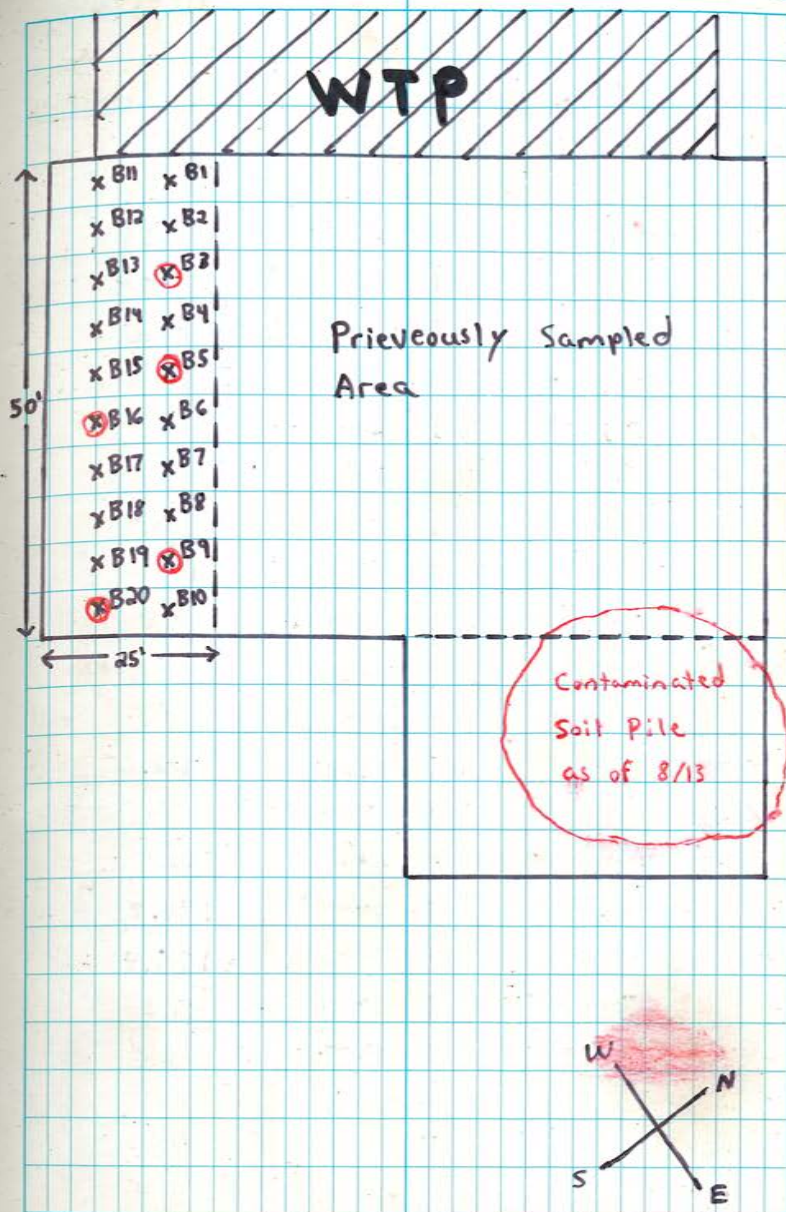 WTP
B11 B1
B12 B2
B13 B3
B14 B4
B15 B5
B16 B6
B17 B7
B18 B8
B19 B9
B20 B10
50'
25'
Prieveously Sampled
Area
Contaminated
Soil Pile
as of 8/13
W
N
S
E